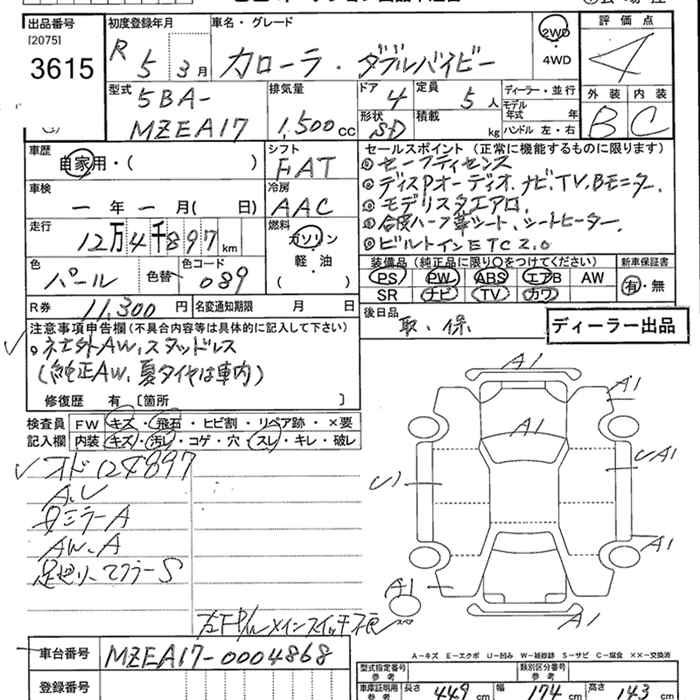 出品番号
[2075]
3615
初度登録年月
R 5年 3月
車名・グレード
カローラ・ダブルバイビー
2WD
・
4WD
評価点
4
外装 内装
B C
型式
5BA-
MZEA17
排気量
1,500cc
ドア 4
形状 SD
定員 5人
積載 kg
ディーラー・並行
モデル年式 年
ハンドル 左・右
車歴
自家用・( )
シフト
FAT
車検
一年一月( 日)
冷房
AAC
走行
12万4千897km
燃料
ガソリン
軽・油
( )
色
パール
色替
色コード
089
R券 11,300円
名変通知期限 月 日
セールスポイント(正常に機能するものに限ります)
①セーフティセンス
②ディスPオーディオ、ナビ、TV、Bモニター、
③モデリスタエアロ、
④合皮ハーフ革シート、シートヒーター、
⑤ビルトインETC2.0
装備品(純正品に限り○をつけてください)
PS PW ABS エアB AW
SR ナビ TV カワ
新車保証書
有・無
後日品
取・保
ディーラー出品
注意事項申告欄(不具合内容等は具体的に記入して下さい)
。社外AW、スタッドレス
(純正AW、夏タイヤは車内)
修復歴 有[箇所 ]
検査員記入欄
FW キズ・飛石・ヒビ割・リペア跡・×要
内装 キズ・汚レ・コゲ・穴・スレ・キレ・破レ
オド124897
A.U
ミラーA
AW、A
足廻リ、マフラーS
メインスイッチ
A1
A1
A1
U1
UA1
A1
A1
A1
スペア
A-キズ E-エクボ U-凹み W-補修跡 S-サビ C-腐食 ××-交換済
車台番号
MZEA17-0004868
登録番号
型式指定番号
参考
類別区分番号
参考
車庫証明用
参考
長さ 449cm
幅 174cm
高さ 143cm